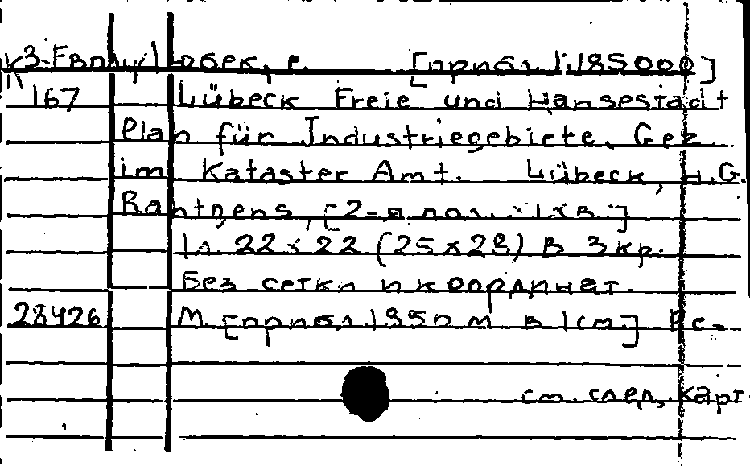 К3-Европы/Любек, г. [прибл. 1:185000]
167 Lübeck Freie und Hansestadt
Plan für Industriegebiete. Gez.
im Kataster Amt. Lübeck, H.G.
Räntgens, [2-я пол. XIX в.]
1 л. 22 x 22 (25 x 28) в 3 кр.
Без сетки и координат.
28426 М. [прибл. 1850 м в 1 см.]
см. след. карт